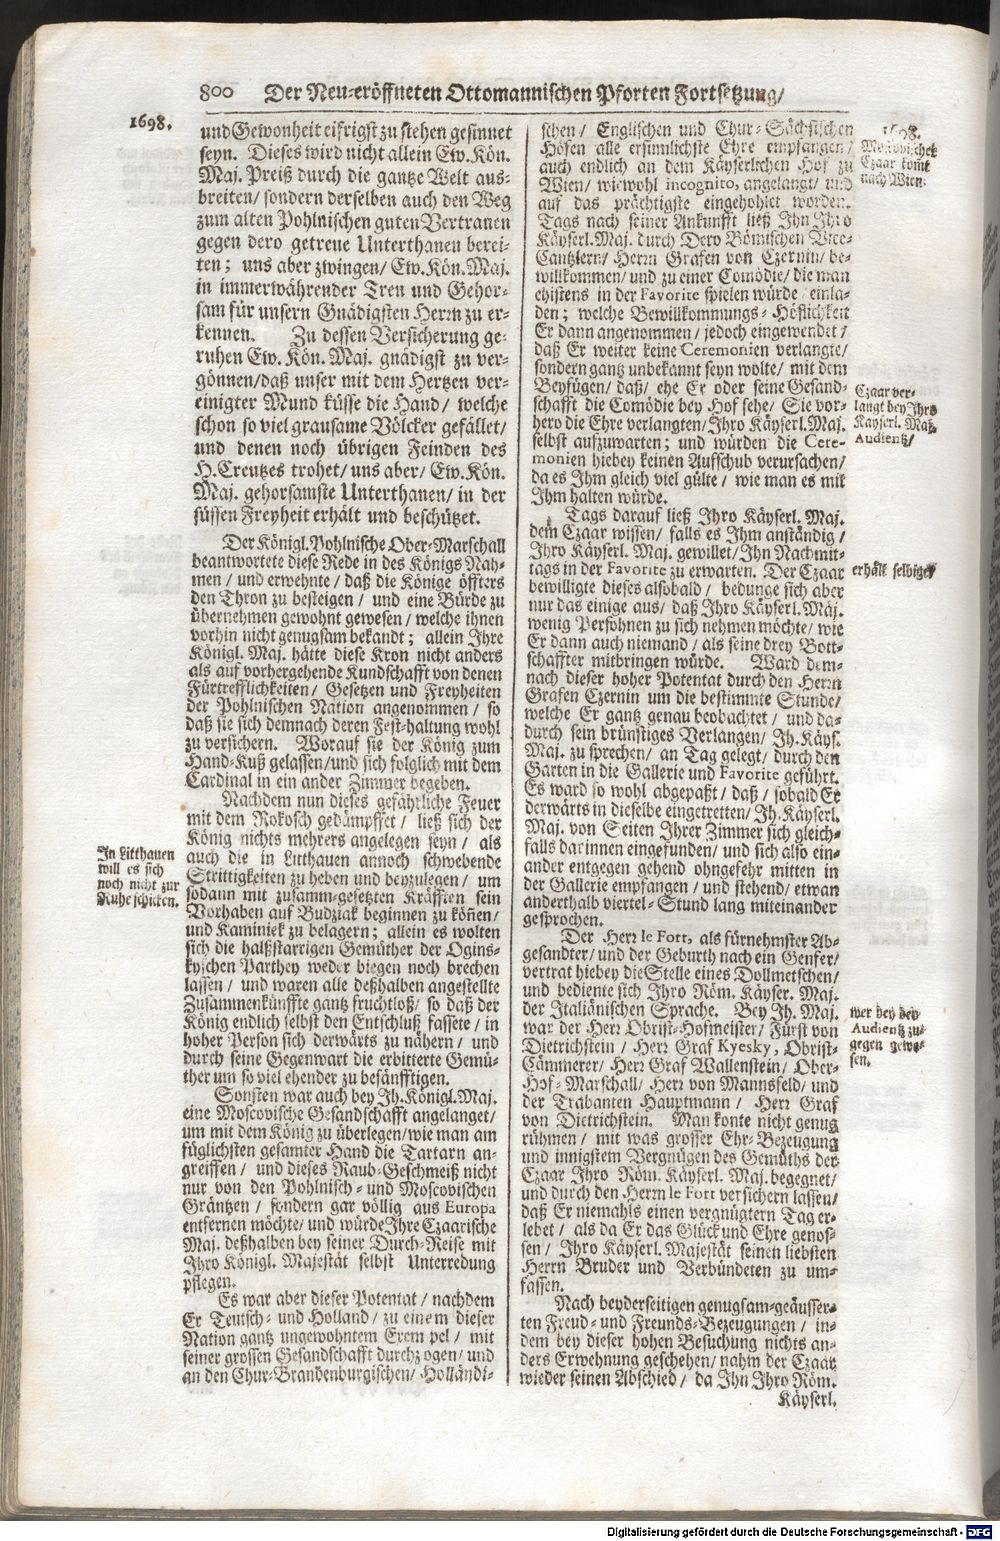 800 Der Neu-eröffneten Ottomannischen Pforten Fortsetzung/
1698.
und Gewonheit eifrigst zu stehen gesinnet
seyn. Dieses wird nicht allein Ew. Kön.
Maj. Preiß durch die gantze Welt aus-
breiten/ sondern derselben auch den Weg
zum alten Pohlnischen guten Vertrauen
gegen dero getreue Unterthanen berei-
ten; uns aber zwingen/ Ew. Kön. Maj.
in immerwährender Treu und Gehor-
sam für unsern Gnädigsten Herrn zu er-
kennen. Zu dessen Versicherung ge-
ruhen Ew. Kön. Maj. gnädigst zu ver-
gönnen/ daß unser mit dem Hertzen ver-
einigter Mund küsse die Hand/ welche
schon so viel grausame Völcker gefället/
und denen noch übrigen Feinden des
H. Creutzes trohet/ uns aber/ Ew. Kön.
Maj. gehorsamste Unterthanen/ in der
süssen Freyheit erhält und beschützet.
Der Königl. Pohlnische Ober-Marschall
beantwortete diese Rede in des Königs Nah-
men/ und erwehnte/ daß die Könige öffters
den Thron zu besteigen/ und eine Bürde zu
übernehmen gewohnt gewesen/ welche ihnen
vorhin nicht genugsam bekandt; allein Ihre
Königl. Maj. hätte diese Kron nicht anders
als auf vorhergehende Kundschafft von denen
Fürtrefflichkeiten/ Gesetzen und Freyheiten
der Pohlnischen Nation angenommen/ so
daß sie sich demnach deren Fest-haltung wohl
zu versichern. Worauf sie der König zum
Hand-Kuß gelassen/ und sich folglich mit dem
Cardinal in ein ander Zimmer begeben.
Nachdem nun dieses gefährliche Feuer
mit dem Rokosch gedämpffet/ ließ sich der
König nichts mehrers angelegen seyn/ als
auch die in Litthauen annoch schwebende
Strittigkeiten zu heben und beyzulegen/ um
sodann mit zusamm-gesetzten Kräfften sein
Vorhaben auf Budziak beginnen zu köñen/
und Kaminiek zu belagern; allein es wolten
sich die halßstarrigen Gemüther der Ogins-
kyschen Parthey weder biegen noch brechen
lassen/ und waren alle deßhalben angestellte
Zusammenkünffte gantz fruchtloß/ so daß der
König endlich selbst den Entschluß fassete/ in
hoher Person sich derwärts zu nähern/ und
durch seine Gegenwart die erbitterte Gemü-
ther um so viel ehender zu besänfftigen.
Sonsten war auch bey Ih. Königl. Maj.
eine Moscovische Gesandschafft angelanget/
um mit dem König zu überlegen/ wie man am
füglichsten gesamter Hand die Tartarn an-
greiffen/ und dieses Raub-Geschmeiß nicht
nur von den Pohlnisch- und Moscovischen
Gräntzen/ sondern gar völlig aus Europa
entfernen möchte/ und würde Ihre Czaarische
Maj. deßhalben bey seiner Durch-Reise mit
Ihro Königl. Majestät selbst Unterredung
pflegen.
Es war aber dieser Potentat/ nachdem
Er Teutsch- und Holland/ zu einem dieser
Nation gantz ungewohntem Exempel/ mit
seiner grossen Gesandschafft durchzogen/ und
an den Chur-Brandenburgischen/ Holländi-
In Litthauen
will es sich
noch nicht zur
Ruhe schicken.
schen/ Englischen und Chur-Sächsischen
Höfen alle ersinnlichste Ehre empfangen/
auch endlich an dem Käyserlichen Hof zu
Wien/ wiewohl incognito, angelangt/ und
auf das prächtigste eingehohlet worden.
Tags nach seiner Ankunfft ließ Ihn Ihro
Käyserl. Maj. durch Dero Bömischen Vice-
Cantzlern/ Herrn Grafen von Czernin/ be-
willkommen/ und zu einer Comödie/ die man
ehistens in der Favorite spielen würde/ einla-
den; welche Bewillkommungs-Höflichkeit
Er dann angenommen/ jedoch eingewendet/
daß Er weiter keine Ceremonien verlangte/
sondern gantz unbekannt seyn wolte/ mit dem
Beyfügen/ daß/ ehe Er oder seine Gesand-
schafft die Comödie bey Hof sehe/ Sie vor-
hero die Ehre verlangten/ Ihro Käyserl. Maj.
selbst aufzuwarten; und würden die Cere-
monien hiebey keinen Aufschub verursachen/
da es Ihm gleich viel gülte/ wie man es mit
Ihm halten würde.
Tags darauf ließ Ihro Käyserl. Maj.
dem Czaar wissen/ falls es Ihm anständig/
Ihro Käyserl. Maj. gewillet/ Ihn Nachmit-
tags in der Favorite zu erwarten. Der Czaar
bewilligte dieses alsobald/ bedunge sich aber
nur das einige aus/ daß Ihro Käyserl. Maj.
wenig Persohnen zu sich nehmen möchte/ wie
Er dann auch niemand/ als seine drey Bott-
schaffter mitbringen würde. Ward dem-
nach dieser hoher Potentat durch den Herrn
Grafen Czernin um die bestimmte Stunde/
welche Er gantz genau beobachtet/ und da-
durch sein brünstiges Verlangen/ Ih. Käys.
Maj. zu sprechen/ an Tag gelegt/ durch den
Garten in die Gallerie und Favorite geführt.
Es ward so wohl abgepaßt/ daß/ sobald Er
derwärts in dieselbe eingetretten/ Ih. Käyserl.
Maj. von Seiten Ihrer Zimmer sich gleich-
falls darinnen eingefunden/ und sich also ein-
ander entgegen gehend ohngefehr mitten in
der Gallerie empfangen/ und stehend/ etwan
anderthalb viertel-Stund lang miteinander
gesprochen.
Der Herr le Fort, als fürnehmster Ab-
gesandter/ und der Geburth nach ein Genfer/
vertrat hiebey die Stelle eines Dollmetschen/
und bediente sich Ihro Röm. Käyser. Maj.
der Italiänischen Sprache. Bey Ih. Maj.
war der Herr Obrist-Hofmeister/ Fürst von
Dietrichstein/ Herr Graf Kyesky, Obrist-
Cämmerer/ Herr Graf Wallenstein/ Ober-
Hof-Marschall/ Herr von Mannsfeld/ und
der Trabanten Hauptmann/ Herr Graf
von Dietrichstein. Man konte nicht genug
rühmen/ mit was grosser Ehr-Bezeugung
und innigstem Vergnügen des Gemüths der
Czaar Ihro Röm. Käyserl. Maj. begegnet/
und durch den Herrn le Fort versichern lassen/
daß Er niemahls einen vergnügtern Tag er-
lebet/ als da Er das Glück und Ehre genos-
sen/ Ihro Käyserl. Majestät seinen liebsten
Herrn Bruder und Verbündeten zu um-
fassen.
Nach beyderseitigen genugsam-geäusser-
ten Freud- und Freunds-Bezeugungen/ in-
dem bey dieser hohen Besuchung nichts an-
ders Erwehnung geschehen/ nahm der Czaar
wieder seinen Abschied/ da Ihn Ihro Röm.
Käyserl.
1698.
Moscovischer
Czaar komt
nach Wien.
Czaar ver-
langt bey Ihro
Kayserl. Maj.
Audientz/
erhält selbige/
wer bey der
Audientz zu-
gegen gewe-
sen.
Digitalisierung gefördert durch die Deutsche Forschungsgemeinschaft - DFG